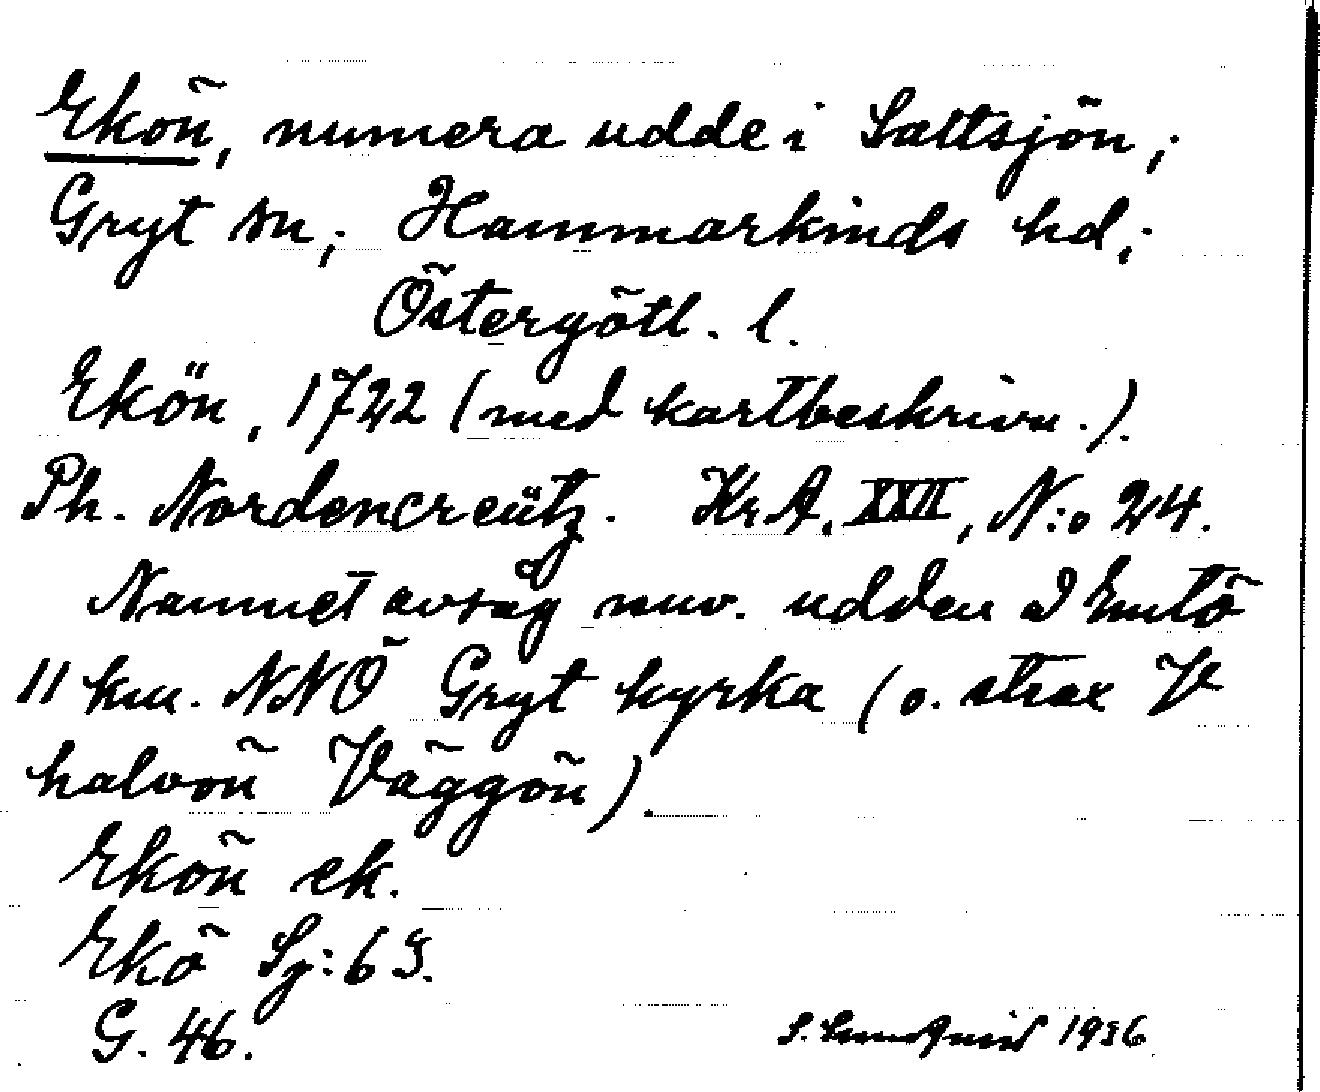 Ekön, numera udde i Saltsjön;
Gryt sn; Hammarkinds hd;
Östergötl. l.
Ekön, 1722 (med kartbeskrivn.).
Ph. Nordencreütz. Kr.A. XXII, N:o 24.
Namnet avsåg nuv. udden
11 km. NNÖ Gryt kyrka (o. strax V
halvön Väggön).
Ekön ek.
Ekö Sj: 63.
G. 46.
1936